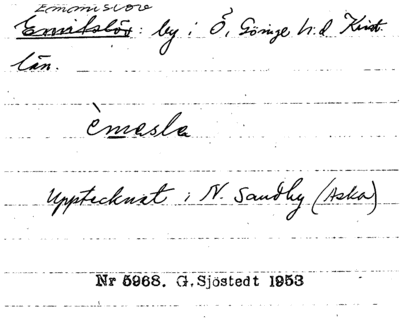 Emmislöv
Emitslöv: by i Ö, Göinge h.d Krist.
län.
èmesla
Upptecknat i N. Sandby (Aska)
Nr 5968. G.Sjöstedt 1953